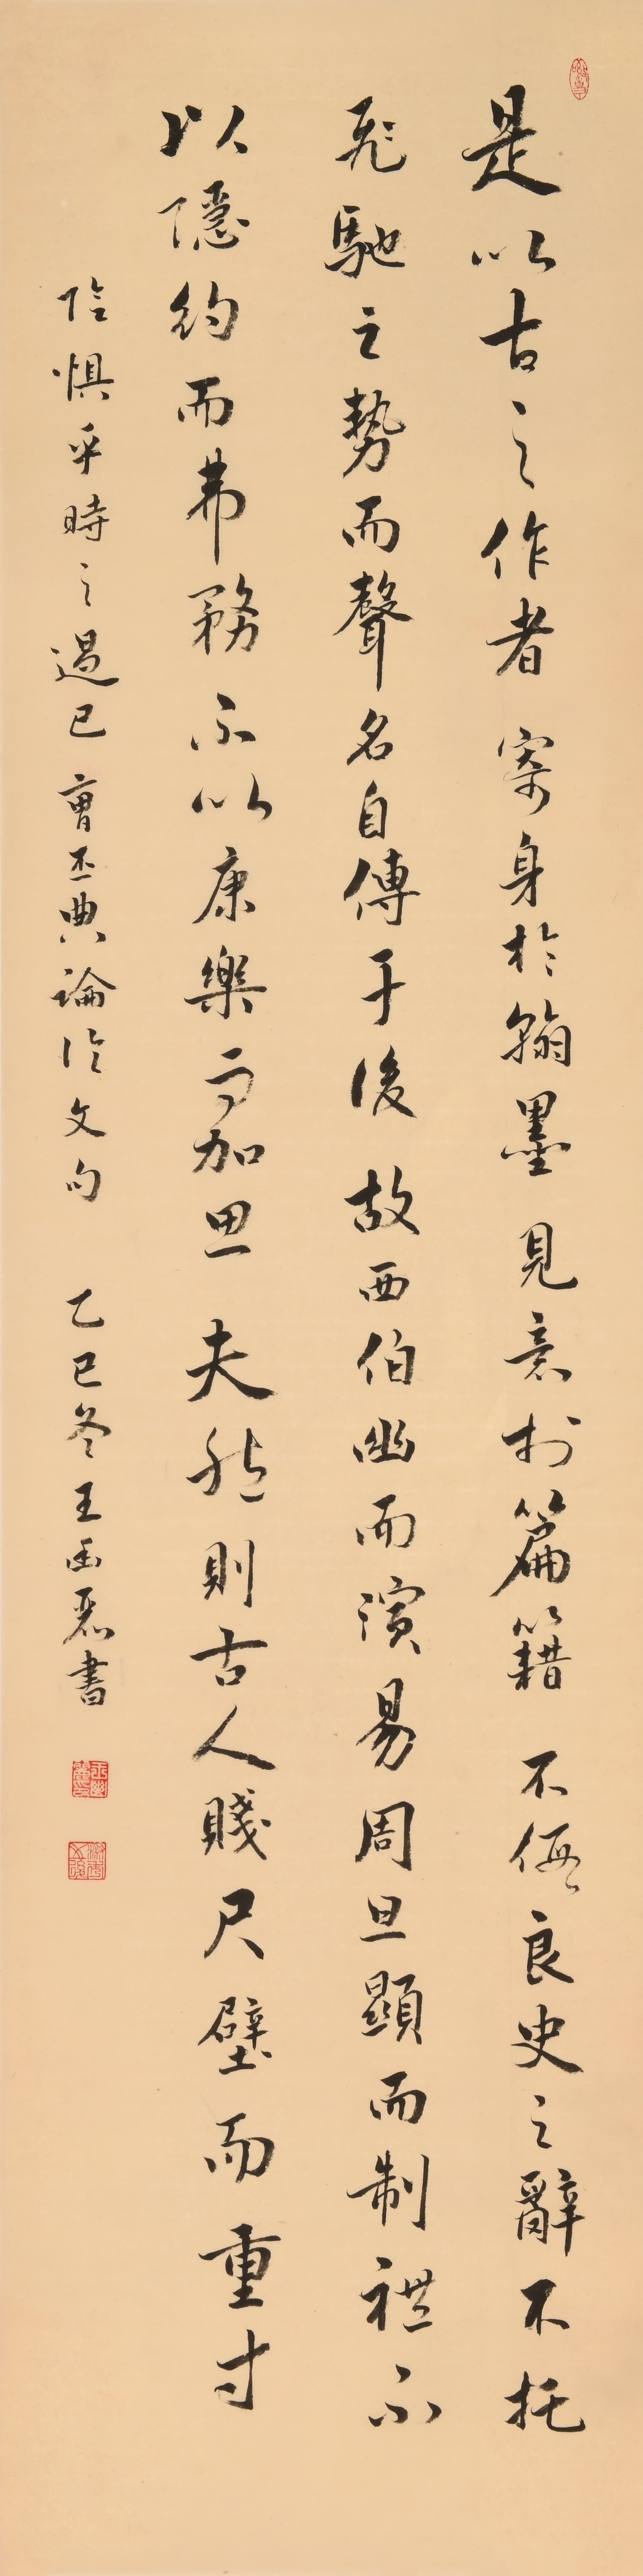 是以古之作者寄身於翰墨見意於篇籍不假良史之辭不托
飛馳之勢而聲名自傳于後故西伯幽而演易周旦顯而制禮不
以隱約而弗務不以康樂而加思夫然則古人賤尺璧而重寸
陰懼乎時之過已曹丕典論論文句乙巳冬王幽麗書